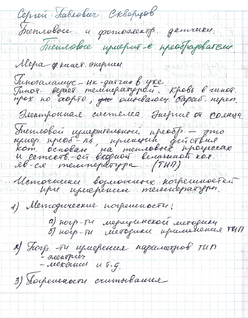 Сергей Павлович Скворцов
Тепловые и фотоэлектр. датчики.
Тепловые измерит-е преобразователи
Мера
Гипоталамус – ик-датчик в ухе.
температурой. Кровь в
Электронная система. Энергия от солнца
Тепловой измерительный преобр – это
измер. преоб-ль, принцип действия
кот. основан на тепловых процессах
и естеств-ой входной величиной кот.
яв-ся температура (ТИП)
Источники возможных погрешностей
при измерении температуры.
1) Методические погрешности:
а) погр-ти медицинской методики
б) погр-ти методики применения ТИП
2) Погр-ти измерения параметров ТИП
- электрич
- механич и т.д
3) Погрешности считывания